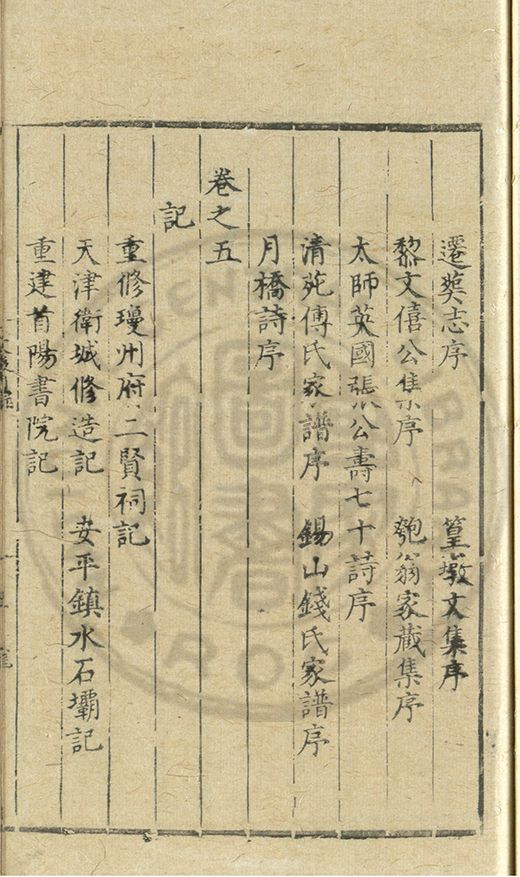 遷奠志序　篁墩文集序
黎文僖公集序　匏翁家藏集序
太師英國張公壽七十詩序
清苑傅氏家譜序　錫山錢氏家譜序
月橋詩序
卷之五
記
重修瓊州府二賢祠記
天津衛城修造記　安平鎮水石壩記
重建首陽書院記